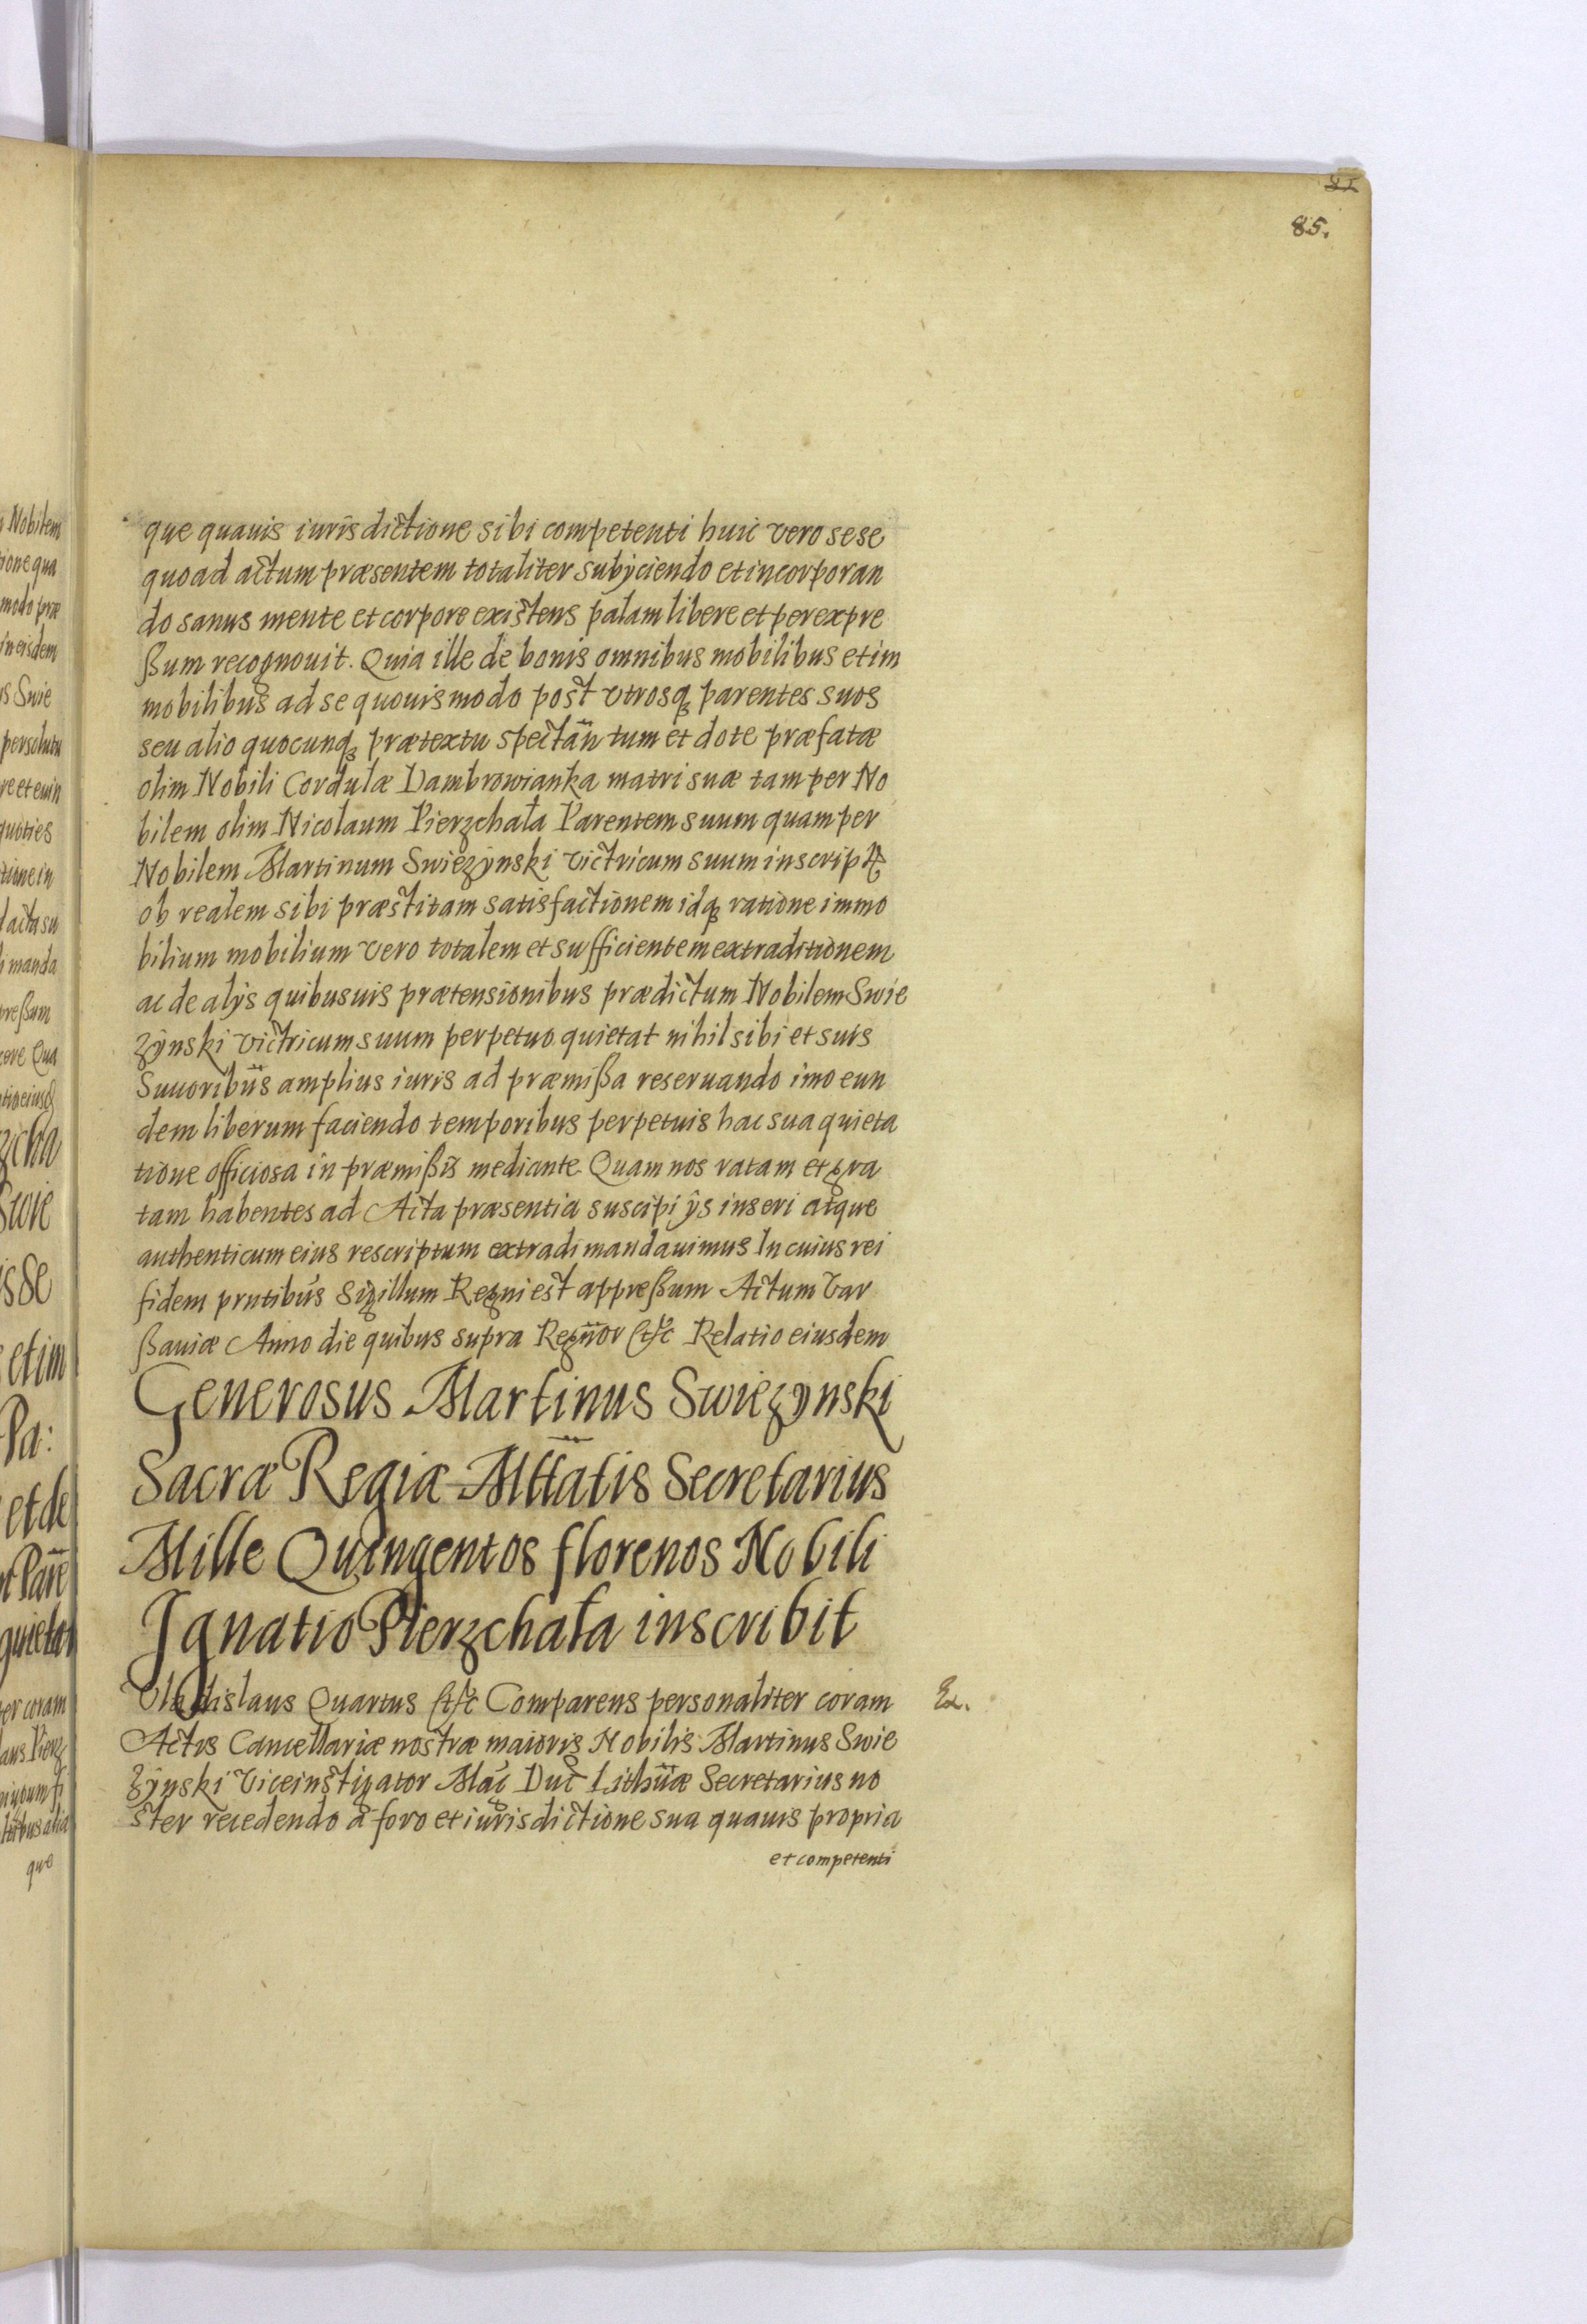 85.
que quauis iurisdictione sibi competenti huic vero sese
quo ad actum præsentem totaliter subijciendo et incorporan
do sanus mente et corpore existens palam libere et per expre
ßum recognouit. Quia ille de bonis omnibus mobilibus et im
mobilibus ad se quouis modo post vtrosq parentes suos
seu alio quocunq prætextu spectān tum et dote præfatæ
olim Nobili Cordulæ Dambrowianka matri suæ tam per No
bilem olim Nicolaum Pierzchała Parentem suum quam per
Nobilem Martinum Swiezÿnski victricum suum inscript
ob realem sibi præstitam satisfactionem idq ratione immo
bilium mobilium vero totalem et sufficientem extraditionem
ac de alijs quibusuis prætensionibus prædictum Nobilem Swie
zÿnski victricum suum perpetuo quietat nihil sibi et suis
Suuoribus amplius iuris ad præmißa reseruando imo eun
dem liberum faciendo temporibus perpetuis hac sua quieta
tione officiosa in præmißis mediante. Quam nos ratam et gra
tam habentes ad Acta præsentia suscipi ijs inseri atque
authenticum eius rescriptum extradi mandauimus In cuius rei
fidem prntibus Sigillum Regni est appreßum Actum Var
ßauiæ Anno die quibus supra Regnor etc Relatio eiusdem
Generosus Martinus Swiezynski
Sacræ Regiæ Mttatis Secretarius
Mille Quingentos florenos Nobili
Ignatio Pierzchała inscribit
Vladislaus Quartus etc Comparens personaliter coram
Ex.
Actis Cancellariæ nostræ maioris Nobilis Martinus Swie
zÿnski Viceinstigator Mag Duc Lithuæ Secretarius no
ster recedendo a foro et iurisdictione sua quauis propria
et competenti